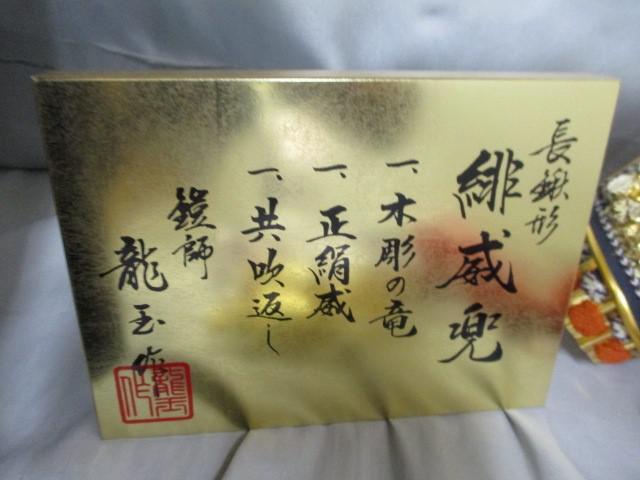 長鍬形
緋威兜
一、木彫の竜
一、正絹威
一、共吹返し
鎧師
龍玉作
龍玉作